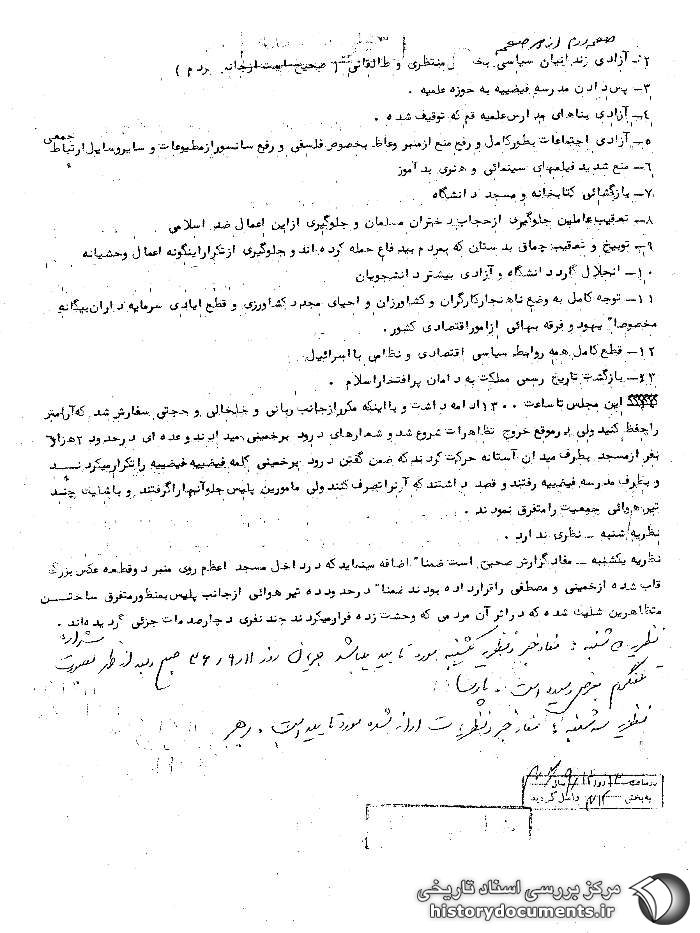 صفحه دوم از
۲ـ آزادی زندانیان سیاسی بخصوص منتظری و طالقانی ( صحیح است از جانب مردم )
۳ـ پس دادن مدرسه فیضیه به حوزه علمیه .
۴ـ آزادی بناهای مدارس علمیه قم که توقیف شده .
۵ـ آزادی اجتماعات بطور کامل و رفع منع از منبر وعاظ بخصوص فلسفی و رفع سانسور از مطبوعات و سایر وسایل ارتباط جمعی
۶ـ منع شدید فیلمهای سینمائی و هنری بدآموز
۷ـ بازگشائی کتابخانه و مسجد دانشگاه
۸ـ تعقیب عاملین جلوگیری از حجاب دختران مسلمان و جلوگیری از این اعمال ضد اسلامی
۹ـ توبیخ و تعقیب چماق بدستان که بمردم بیدفاع حمله کرده‌اند و جلوگیری از تکرار اینگونه اعمال وحشیانه
۱۰ـ انحلال گارد دانشگاه و آزادی بیشتر دانشجویان
۱۱ـ توجه کامل به وضع ناهنجار کارگران و کشاورزان و احیای مجدد کشاورزی و قطع ایادی سرمایه داران بیگانه
مخصوصا" یهود و فرقه بهائی از امور اقتصادی کشور .
۱۲ـ قطع کامل همه روابط سیاسی اقتصادی و نظامی با اسرائیل
۱۳ـ بازگشت تاریخ رسمی مملکت به دامان پرافتخار اسلام .
این مجلس تا ساعت ۱۳۰۰ ادامه داشت و با اینکه مکرر از جانب ربانی و خلخالی و حجتی سفارش شد که آرامش
را حفظ کنید ولی در موقع خروج تظاهرات شروع شد و شعارهای درود بر خمینی میدادند و عده ای در حدود ۲ هزار
نفر از مسجد بطرف میدان آستانه حرکت کردند که ضمن گفتن درود بر خمینی کلمه فیضیه فیضیه را تکرار میکردند
و بطرف مدرسه فیضیه رفتند و قصد داشتند که آنرا تصرف کنند ولی مامورین پلیس جلو آنها را گرفتند و با شلیک چند
تیر هوائی جمعیت را متفرق نمودند .
نظریه شنبه ـ نظری ندارد .
نظریه یکشنبه ـ مفاد گزارش صحیح است ضمنا" اضافه مینماید که در داخل مسجد اعظم روی منبر دو قطعه عکس بزرگ
قاب شده از خمینی و مصطفی را قرار داده بودند ضمنا" در حدود ده تیر هوائی از جانب پلیس بمنظور متفرق ساختن
متظاهرین شلیک شده که در اثر آن مردمی که وحشت زده فرار میکردند چند نفری دچار صدمات جزئی گردیده‌اند .
نظریه دوشنبه : مفاد خبر و نظریه یکشنبه مورد تایید میباشد جریان روز ۱۱/۹/۳۶ صبح و بعد از ظهر بصورت
تلفنگرام بعرض رسیده است . پارسا
نظریه سه شنبه : مفاد خبر و نظریات ارائه شده مورد تایید است . رهبر
به بخش ۳۱۲ واصل گردید
مرکز بررسی اسناد تاریخی
historydocuments.ir